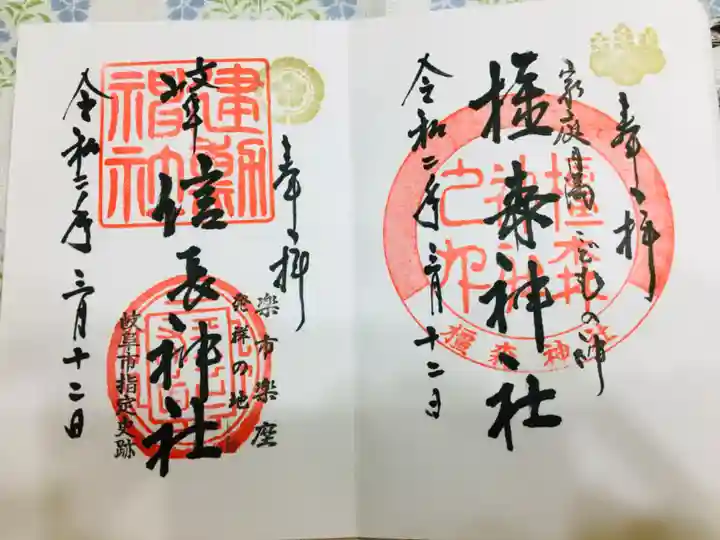 奉拝
家庭円満 こどもの神
橿森神社
令和二年 三月十二日
橿森神社
奉拝
楽市楽座
発祥の地
岐阜信長神社
岐阜市指定史跡
令和二年 三月十二日
建勲神社